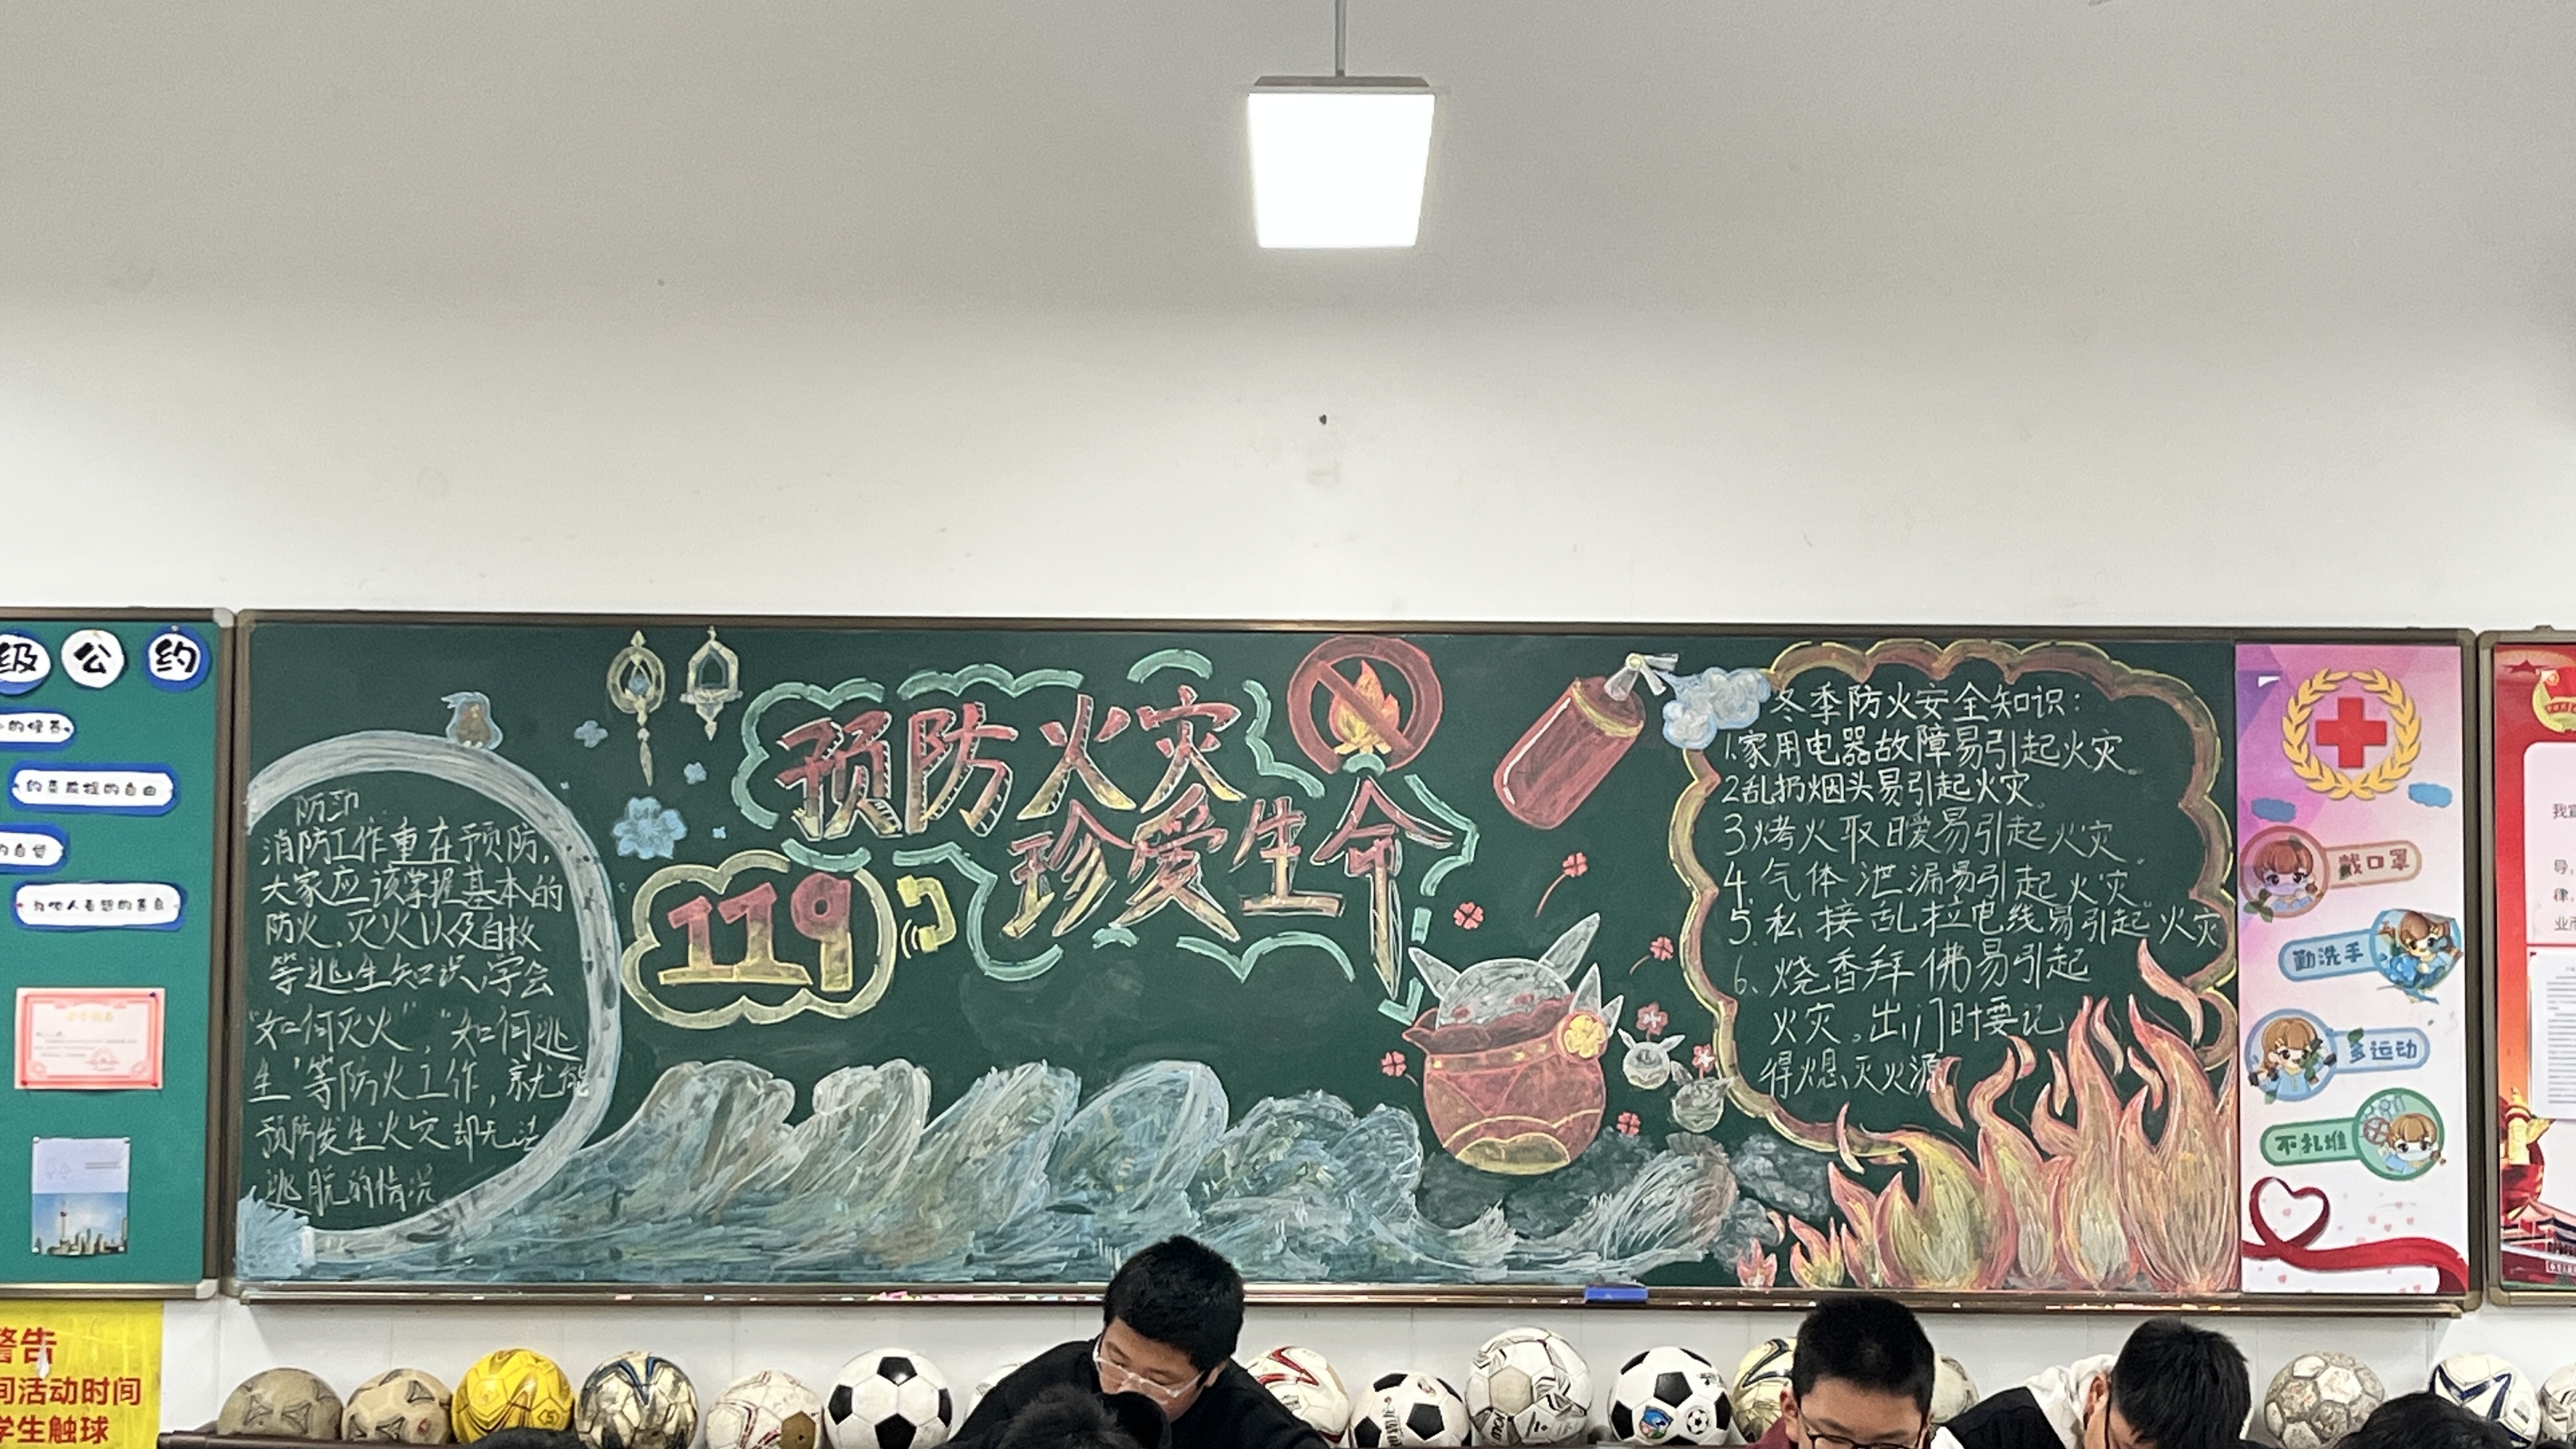 级公约
的自由
预防火灾
珍爱生命
119
防卫
消防工作重在预防,
大家应该掌握基本的
防火、灭火以及自救
等逃生知识,学会
"如何灭火","如何逃
生"等防火工作,就能
预防发生火灾却无法
逃脱的情况
冬季防火安全知识:
1.家用电器故障易引起火灾。
2乱扔烟头易引起火灾。
3.烤火取暖易引起火灾。
4.气体泄漏易引起火灾。
5.私接乱拉电线易引起火灾
6.烧香拜佛易引起
火灾。出门时要记
得熄灭火源
戴口罩
勤洗手
多运动
不扎堆
导,
律
警告
间活动时间
学生触球